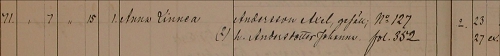 71. " 7 " 15 1. Anna Linnea Andersson Axel, gesäll, No 127 2. 23
h. Andersdotter Johanna fol. 352 27